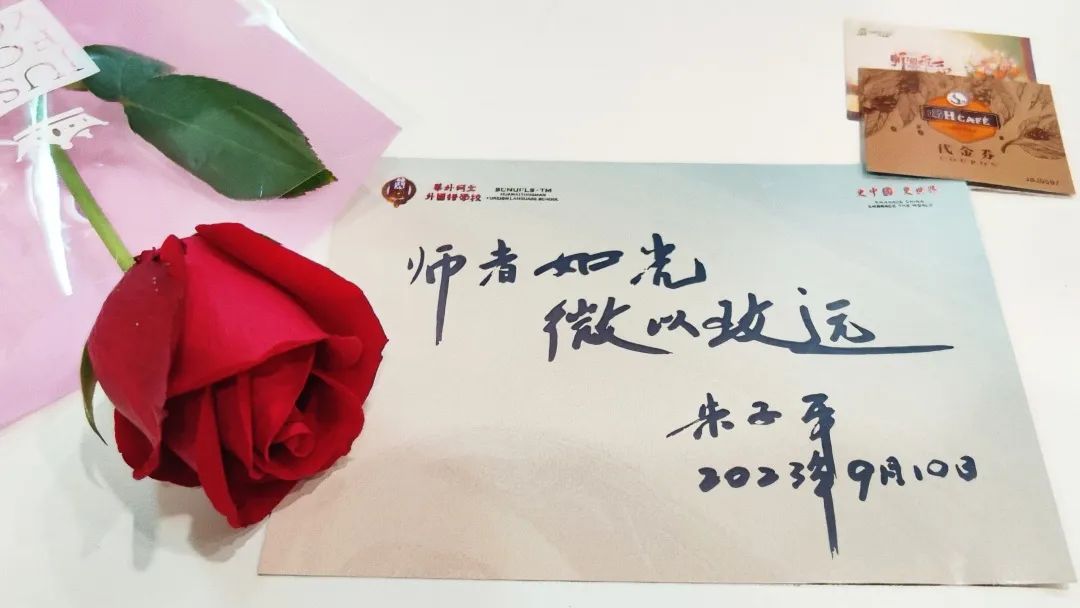 華外同文
外國語學校
SCNUFLS-TM
FOREIGN LANGUAGE SCHOOL
更中國 更世界
EMBRACE CHINA
EMBRACE THE WORLD
师者如光
微以致远
朱子平
2023年9月10日
H CAFÉ
代金券
COUPON